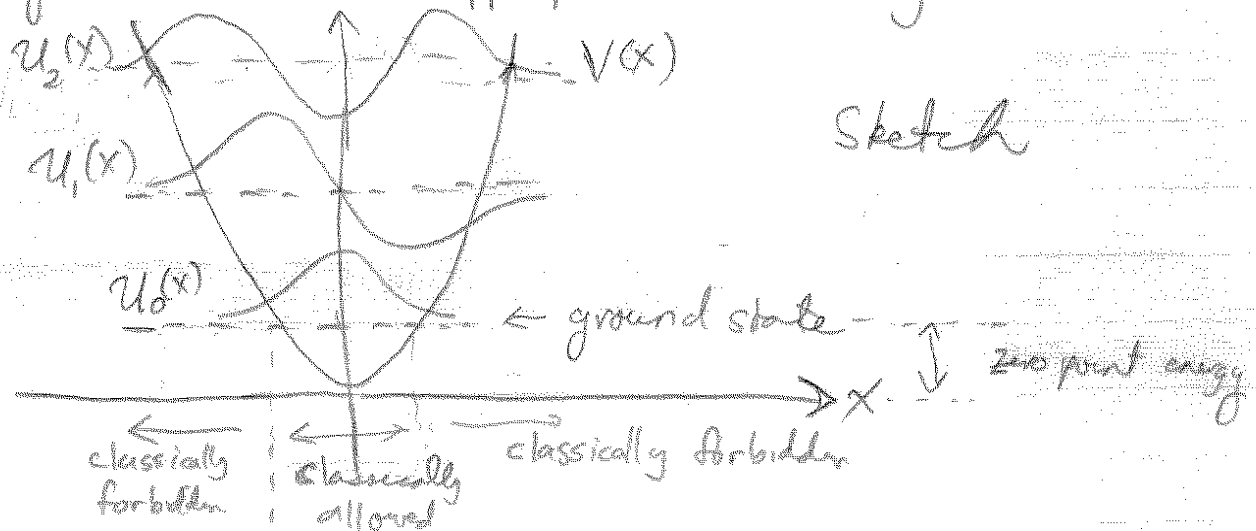 U₂(x)
V(x)
Sketch
U₁(x)
U₀(x)
← ground state
Zero point energy
X
classically
forbidden
classically
allowed
classically forbidden